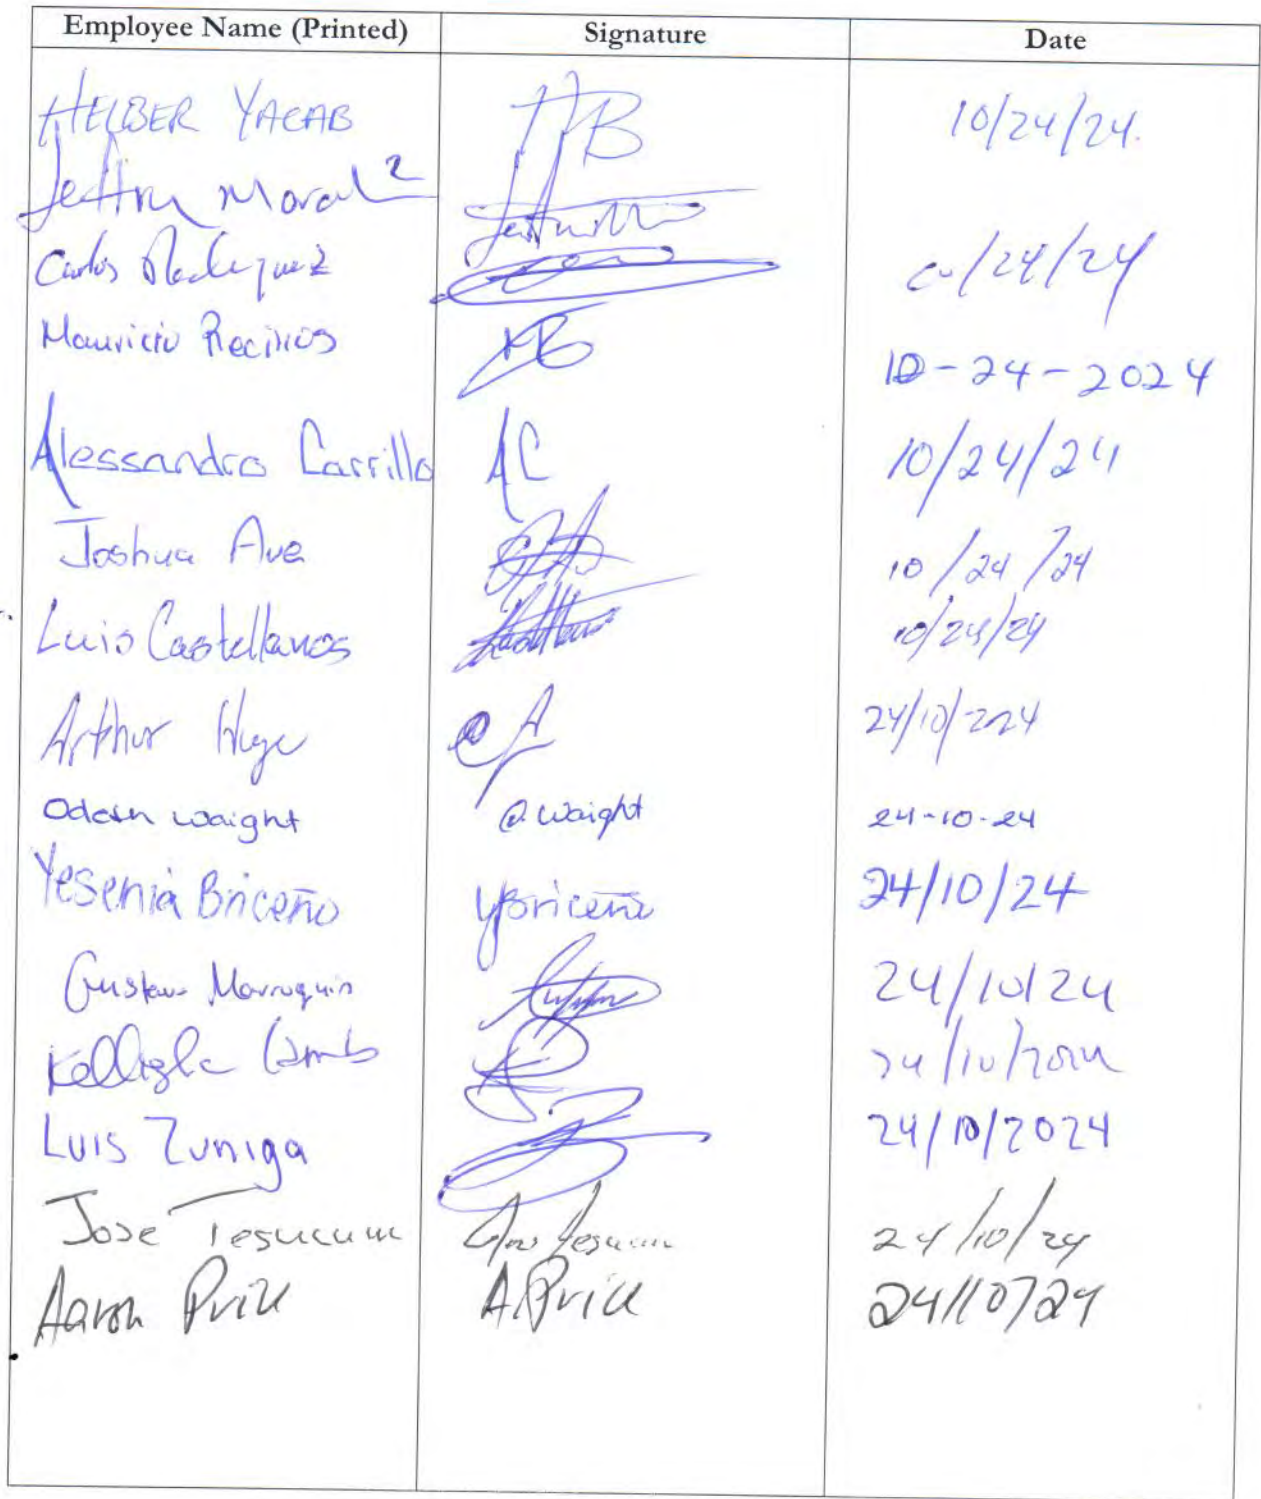 Employee Name (Printed) Signature Date
HELBER YACAB HB 10/24/24.
Carlos /24/24
Mauricio Recinos 10-24-2024
Alessandro Carrillo AC 10/24/24
Joshua Ave 10/24/24
Luis Castellanos 10/24/24
Arthur 24/10/2024
Odesh waight O. Waight 24-10-24
Yesenia Briceño YBriceño 24/10/24
Gustavo Marroquin 24/10/24
24/10/2024
Luis Zuniga 24/10/2024
Jose Tesucum Jose Tesucum 24/10/24
Aaron Price A. Price 24/10/24